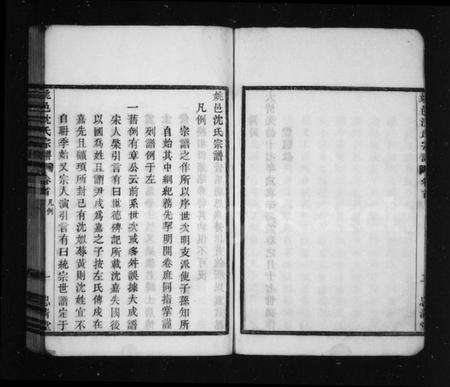 姚邑沈氏宗譜
凡例
宗譜之作所以序世次明支派使子孫知所
自始其中綱紀務先犂明開卷庶同指掌謹
列譜例于左
一舊例有章公云前系世次或多舛誤據大成譜
宋人榮引言有曰世德碑記所載沈嘉失國後
以國為姓且謂尹戌為嘉之子按左氏傳戌在
嘉先且顓頊所封已有沈姒蓐黃則沈姓宜不
自聃季始又宗人演引言有曰統宗世譜定于
姚邑沈氏宗譜
凡例
一
思濟堂
姚邑沈氏宗譜
卷首